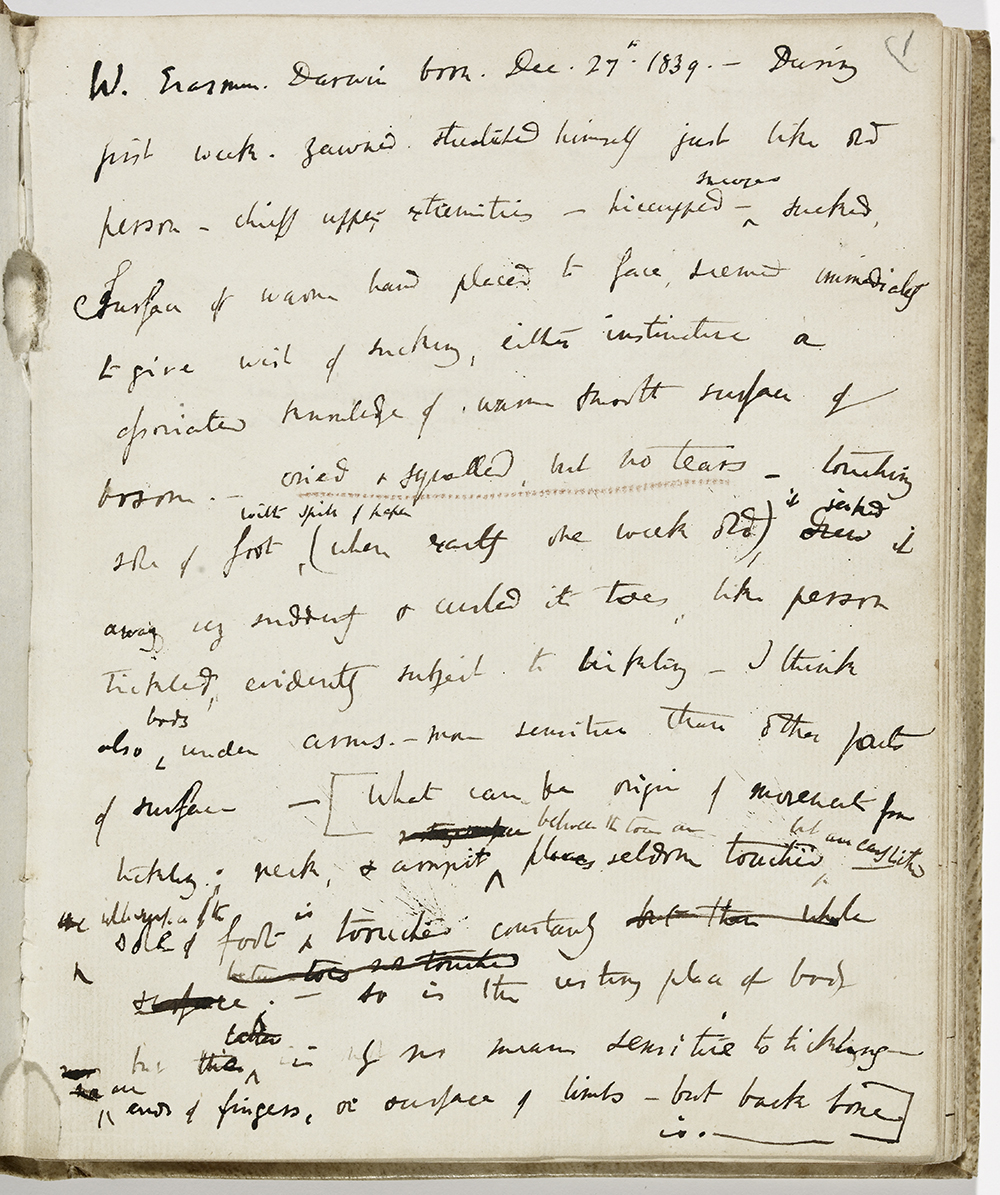 1
W. Erasmus. Darwin born. Dec. 27th. 1839. – During
first week. yawned. streatched himself just like old
person – chiefly upper extremities – hiccupped – sneezes sucked,
Surface of warm hand placed to face, seemed immediately
to give wish of sucking, either instinctive or
associated knowledge of warm smooth surface of
bosom. – cried & squalled, but no tears – touching
sole of foot with spill of paper, (when exactly one week old), it jerked drew it
away very suddenly & curled its toes, like person
tickled, evidently subject to tickling – I think
also body under arms. – more sensitive than other parts
of surface – [What can be origin of movement from
tickling; neck, & armpit between the toes are places seldom touched but are easily tickled
sole of foot is touched constantly but then whole
between toes not touched
surface. – so is the resting place of body
but the latter is by no means sensitive to tickling
are ends of fingers, or surface of limbs – but back bone
is. –]